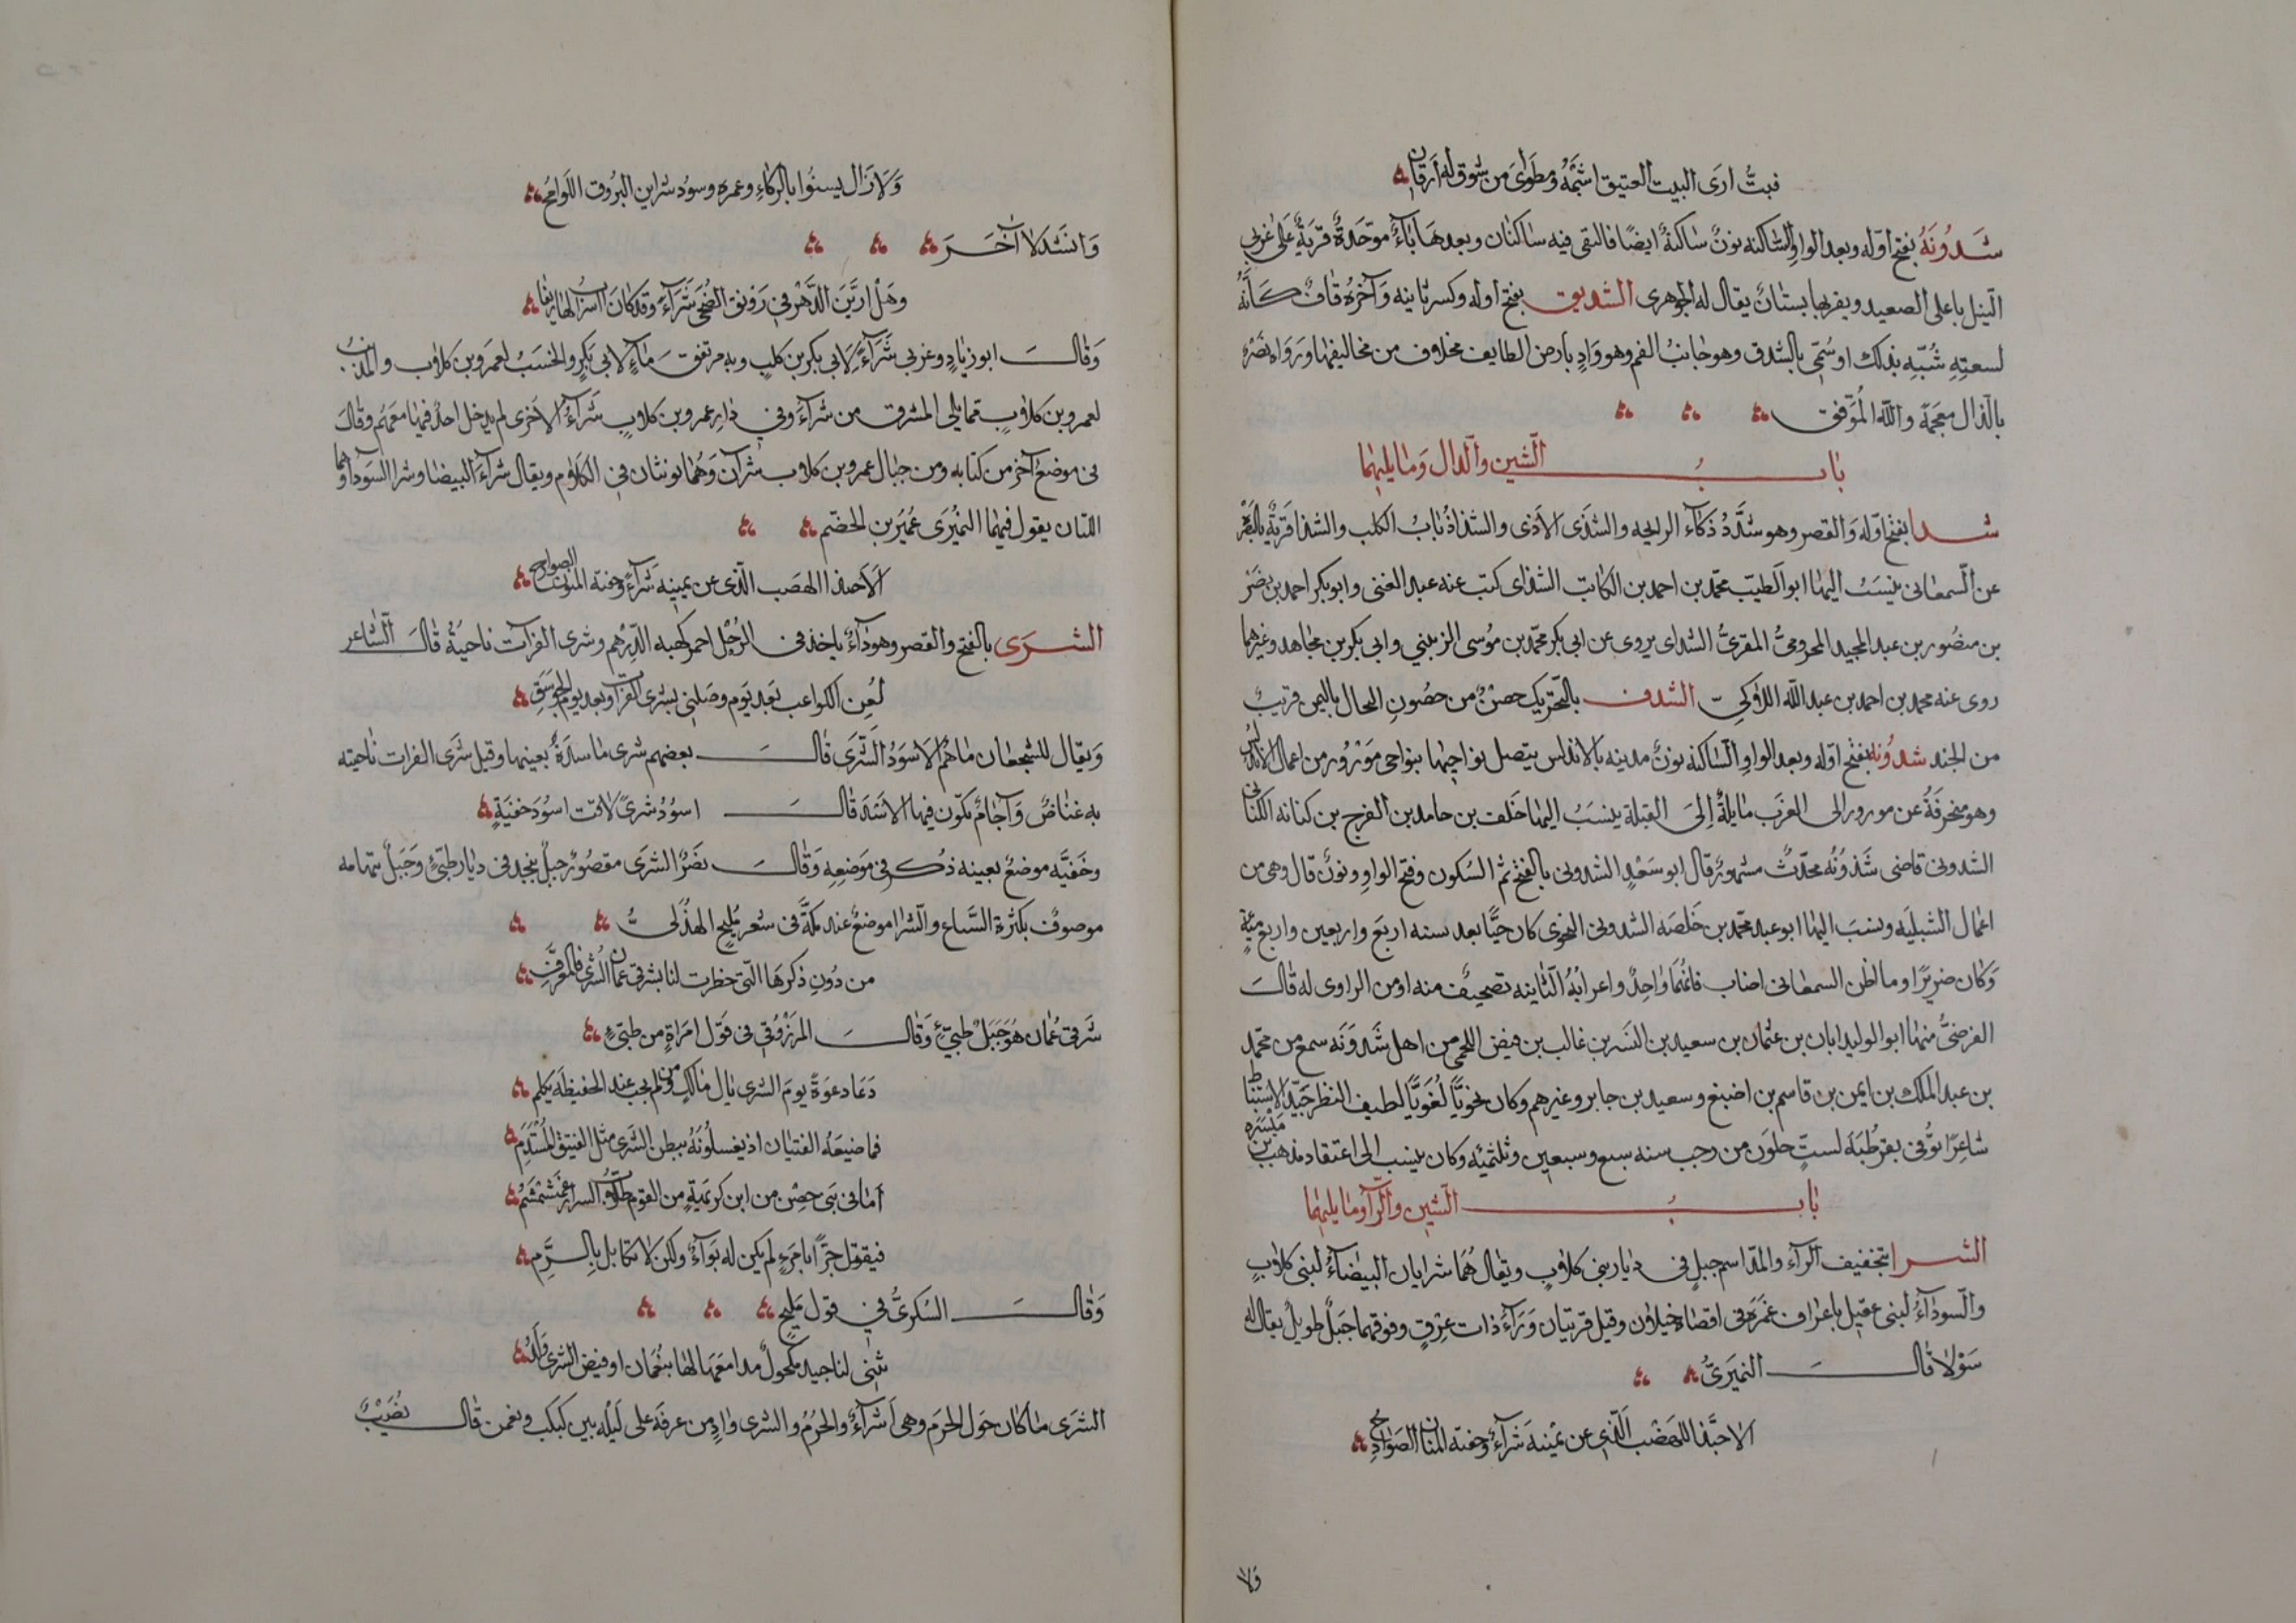 فبتُّ ارَى البيت العتيق اشَمُهُ ومطوَاىَ من شوق له اَرقانِ
شَدُونَهُ بفتح اوّله وبعد الواوِ السَّاكنه نونٌ ساكنةٌ ايضًا فالتقى فيه ساكنان وبعدهَا بَاءٌ موّحَدةٌ قرّيَةٌ عَلَى غربي
النّيل باعلى الصعيد وبقربها بستانٌ يقال له الجوهرى الشديق بفتح اوله وكسر ثانيه وَآخرهُ قافٌ كَأَنَّهُ
لسعتِهِ شُبّهِ بذلك او سُمّى بالشدق وهو جانبُ الفم وهو وَادٍ بارض الطايف مخلاف من مخاليفها ورَوَاه نصَرٌ
بالذال معجَمَة والله المُوَفّق
بابُ الشين والذال وَما يليهما
شدا بفتح اوّله وَالقصر وهو شدَّدُ ذكاَء الرايحه والشذَى الاَذى والشذا ذُبابُ الكلب والشذا قريَةٌ بالبصَرَة
عن السّمعانى ينسَبُ اليها ابو الطيّب محمّد بن احمد بن الكاتب الشذاى كتب عنه عبد الغنى وابو بكر احمد بن نصَر
بن منصُور بن عبد المجيد المقرىُّ الشداى يروى عن ابى بكر محمّد بن مُوسى الزينبي وابى بكر بن مجاهد وغيرهما
روى عنه محمد بن احمد بن عبد الله اللاوكيّ الشدف بالتحّريك حصْنٌ من حصُونِ اليمن قريبٌ
من الجند شدُونه بفتح اوّله وبعد الواوِ السّاكنه نونٌ مدينه بالاندلس يتصل نواحيها بنواحى مَوْزُور من اعمال الاندلُس
وهو منحرفَةٌ عن مورور الى الغرَب مَايلةٌ إلىَ القبلة ينسَبُ اليها خَلف بن حامد بن الفرج بن كنانه الكنانى
الشدونى قاضى شَذوُنُه محدّثٌ مشهورٌ قال ابو سَعْدٍ الشدونى بالفتح ثم السُكون وفتح الواوِ ونونٌ قال وهى من
اعمال اشبيليَه ونسَبَ اليها ابو عبد محمّد بن خَلصَه الشدونى النحوى كان حيًّا بعد سنه اربعَ واربعين واربع مئةٍ
وَكان ضريرًا وما اظن السمعانى اصاب فانهمَا وَاحِدٌ واعرابُهُ الثانيه تصحيفٌ منه او من الراوى له قالَ
الفرضىُّ منها ابو الوليد ابان بن عثمان بن سعيد بن البشر بن غالب بن فيض اللخمى من اهل شَدوَنَه سمع من محمّد
بن عبد الملك بن ايمن بن قاسم بن اصبَغ وسعيد بن جابر وغيرهم وكان نحوًيّا لغُوَيًّا لطيف النظر جيّد الاستنباط
شاعِرًا توّفى بقرطُبَةَ لستٍّ خلوَن من رجب سنه سبع وسبعين وثلثميه وكان ينسب الى اعتقاد مذهب بن مَيْسَره
بابُ الشين والرّآ وما يليها
الشرا بتخفيف الراَّء والمدّ اسم جبلٍ فى ديار بنى كلابٍ ويقال هُمَا شرايان البيضآءُ لبنى كلابٍ
والسوداَّءُ لبنى عقيل باعراف غمَرَه فى اقصاه جبلان وقيل قريتان وَرَآءَ ذات عِرْقٍ وفوقهما جبَلٌ طويلٌ يقال له
سَوْلا قالَ النميَرىُّ
الا حبَّذا الهَضْب الّذى عن يمَينهَ شرآءٌ وحفته المتان الصَوَادِحُ
ولا
وَلاَزَال يسنُوا بالركاءِ وعمره وسوُد شراين البرُوق اللَوامحُ
وَانشدَ لآخَرَ
وهَلْ ارَيَّنَ الدَّهْر في رَوْنق الضُحَى شَرَآءً وقَد كان
وَقالَ ابو زيادٍ وغربى شَرَآءٌ لاَبى بكر بن كلبٍ وبه مرتفق مَاءٍ لابى بَكرٍ والخشَبُ لعمرَو بن كلاب والمذنبُ
لعمرو بن كلابٍ فما يلى المشرق من شرآءَ وفى دارِ عمرو بن كلابٍ شَرآءُ الاَخرى لم يدخل احدٌ فيها معَهُم وقالَ
فى موضعٍ آخر من كتابه ومن جبال عمرو بن كلاب شرآن وَهُما يونثان فى الكلام ويقال شرآءَ البيضا وشرا السَودآ وهما
اللتان يقول فيهما النميُرَى عُميَر بن الخضم
اَلاَ حبذا الهضب الّذى عن يمينه شَرآءٌ وحفته المتون الصوادح
الشرَى بالفتح والقصر وهو دآءٌ ياخذ فى الرُجْل احمر كهيه الدِّرْهم وشرى الفرات ناحيَةٌ قالَ الشاعر
لُعِن الكواعب بَعد يَوم وصَلنى بشرى الفرات وبعد يوم الجَوسَقِ
وَيقَال للشجعان ما هُم الا سُودُ الشّرَى قالَ بعضهم شرى ماسَدةٌ بعينها وقيل شرَى الفرات ناحيته
به غناضٌ وَآجامٌ تكون فيها الاسَدَ قالَ اسوُد شرىً لاقت اسوُدَ خَفيَةٍ
وخَفَيَّه موضعٌ بعينه ذُكر فى مَوضعِهِ وَقالَ نصَرٌ الشرى مقصُورٌ جبلٌ بنجد فى ديار طيىّءٍ وَجَبلٌ بتهامه
موصوفٌ بكثرة السَّباع والشرا موضعٌ عند مكّة فى شعر مُليح الهذَلىّ
من دُونِ ذكرهَا التى خطرت لنا بشرقى عَمان الشرى فالمعرَّفِ
شَرقى عُمان هُوَ جَبَلُ طيىّءٍ وَقالَ المرَزْوُقى فى قَوّل امرَاةٍ من طيىّءٍ
دَعَا دعوَةً يومَ الشرى يال مالكٍ ومن لم يجب عند الحفيظَه يكلم
فما ضيعَهُ الفتيان اذ يغسلُونَهُ ببطن الشَرى مثل الفنيق المُسْدَّمِ
اَما فى بنَى حصْن من ابن كريهَةٍ من القوم طلابِ التراتِ غشَمْشَمُ
فيقوتل جبرًا بامرءٍ لم يكن له بوآءٌ ولكن لا تكايل بالدَّمِ
وَقالَ السُكرىُّ فى قول مَليحٍ
تثنى لنا جيد مكحولٌ مدامعَها لها بنعُمَان او فيض الشرى وَلَدُ
الشرَى ما كان حوَل الحرَم وهى اَشرآءُ والحرَمُ والشرى وادٍ من عرفَة على ليَله بين كبكب ونعمن قالَ نصُيَبٌ